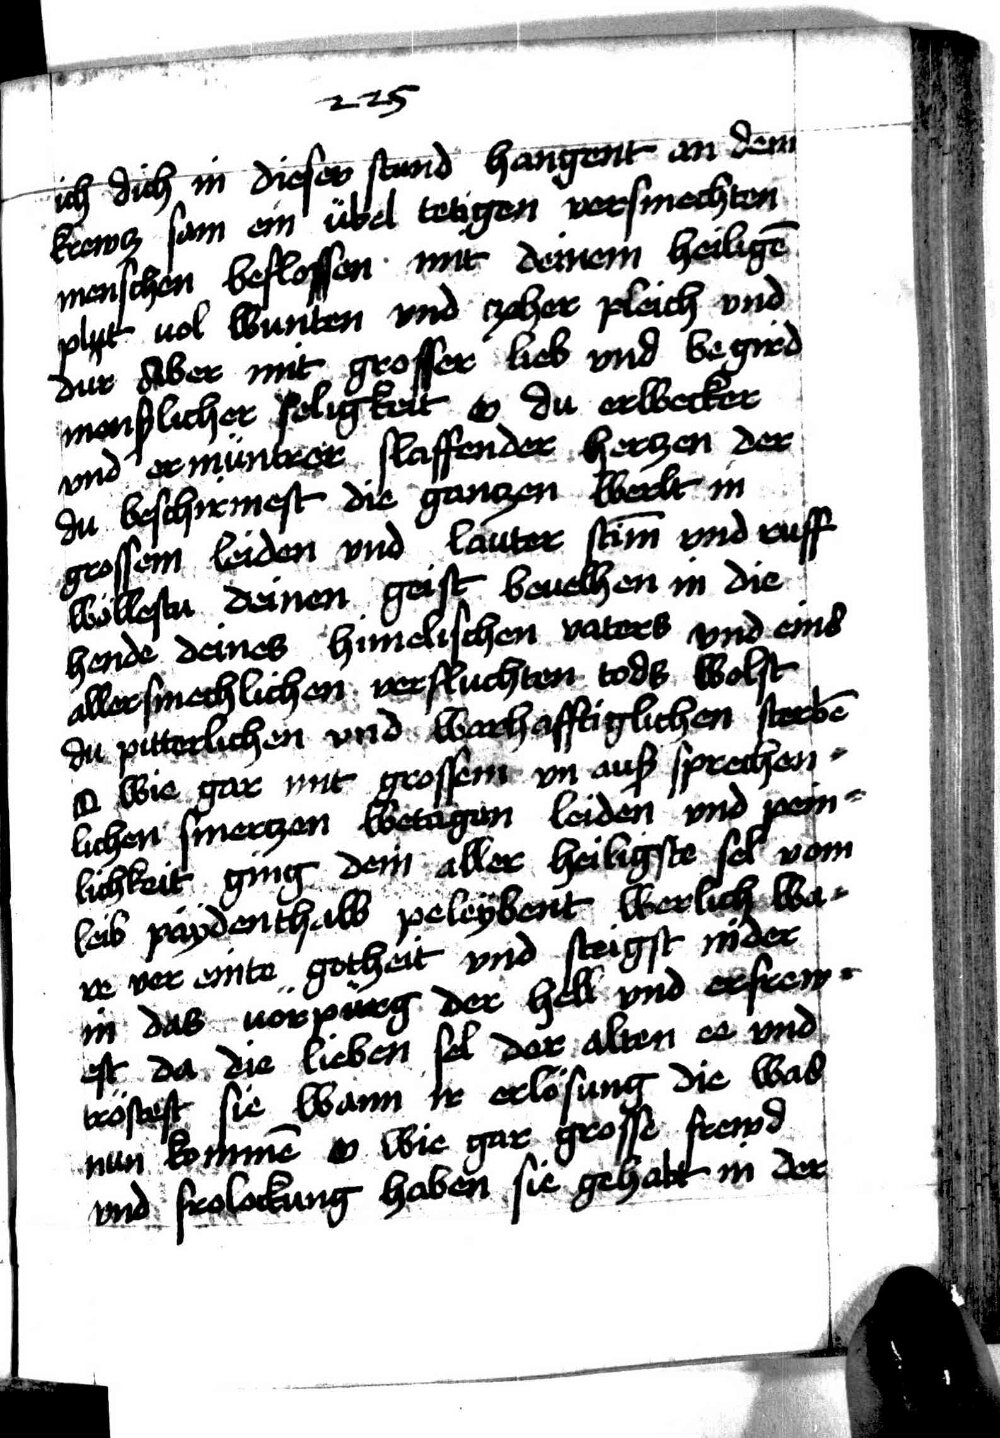 225
ich dich in dieser stund hangent an dem
krewtz sam ein übel tetigen versmechten
menschen beflossen mit deinem heiligē
plut vol wunten vnd zeher pleich vnd
dur Aber mit grosser lieb vnd begird
menschlicher seligkeit O du erwecker
vnd ermüntrer slaffender hertzen der
du beschirmest die gantzen werlt in
grossem leiden vnd lauter stim̄ vnd ruff
wöllestu deinen geist beuelhen in die
hende deines himelischen vaters vnd eins
allersmechlichen verfluchten tods wolst
du pitterlichen vnd warhafftiglichen sterbē
O wie gar mit grossem vn auß sprechen-
lichen smertzen wetagen leiden vnd pein-
lichkeit ging dein aller heiligste sel vom
leib paydenthalb peleybent werlich wa-
re ver einte gotheit vnd steigst nider
in das vörpürg der hell vnd erfrew-
est da die lieben sel der alten ee vnd
tröstest sie wann ir erlösung die was
nun kommē O wie gar grosse frewd
vnd frolockung haben sie gehabt in der